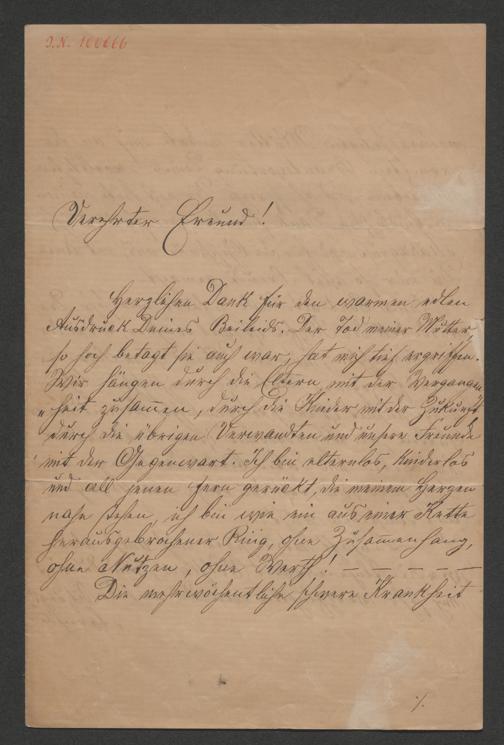 J.N. 166666
Verehrter Freund!
Herzlichen Dank für den warmen edlen
Ausdruck Deines Beileids. Der Tod meiner Mutter
so hoch betagt sie auch war, hat mich tief ergriffen.
Wir hängen durch die Eltern mit der Vergangen
heit zusammen, durch die Kinder mit der Zukunft
durch die übrigen Verwandten und unsere Freunde
mit der Gegenwart. Ich bin elternlos, kinderlos
und all jenen fern gerückt, die meinem Herzen
nahe stehen, ich bin wie ein aus einer Kette
herausgebrochener Ring, ohne Zusammenhang,
ohne Nutzen, ohne Werth! — — — — —
Die mehrwöchentliche schwere Krankheit
./.